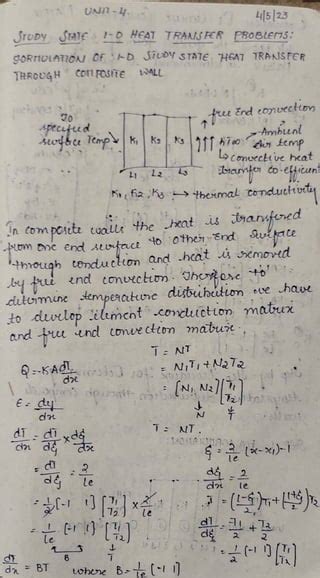 UNIT-4
4/5/23
STUDY STATE 1-D HEAT TRANSFER PROBLEMS:
FORMULATION OF 1-D STUDY STATE HEAT TRANSFER
THROUGH COMPOSITE WALL
free End convection
To
specified
surface Temp
K1 K2 K3
h T∞ → Ambient
air temp
↳ convective heat
transfer co-efficient
L1 L2 L3
K1, K2, K3 → thermal conductivity
In composite walls the heat is transfered
from one end surface to other end surface
through conduction and heat is removed
by free end convection. Therefore to
determine temperature distribution we have
to develop element conduction matrix
and free end convection matrix.
T = NT
Q = -KA dT/dx
= N1T1 + N2T2
= [N1 N2] [T1 T2]
↓ N ↓ T
ϵ = dy/dx
T = NT.
dT/dx = dT/dξ × dξ/dx
ξ = 2/le (x-x1)-1
dξ/dx = 2/le
= dT/dξ · 2/le
= 1/2 [-1 1] [T1 T2] × 2/le
T = (1-ξ/2)T1 + (1+ξ/2)T2
= 1/le [-1 1] [T1 T2]
dT/dξ = -T1/2 + T2/2
↓ B ↓ T
= 1/2 [-1 1] [T1 T2]
dT/dx = BT where B = 1/le [-1 1]